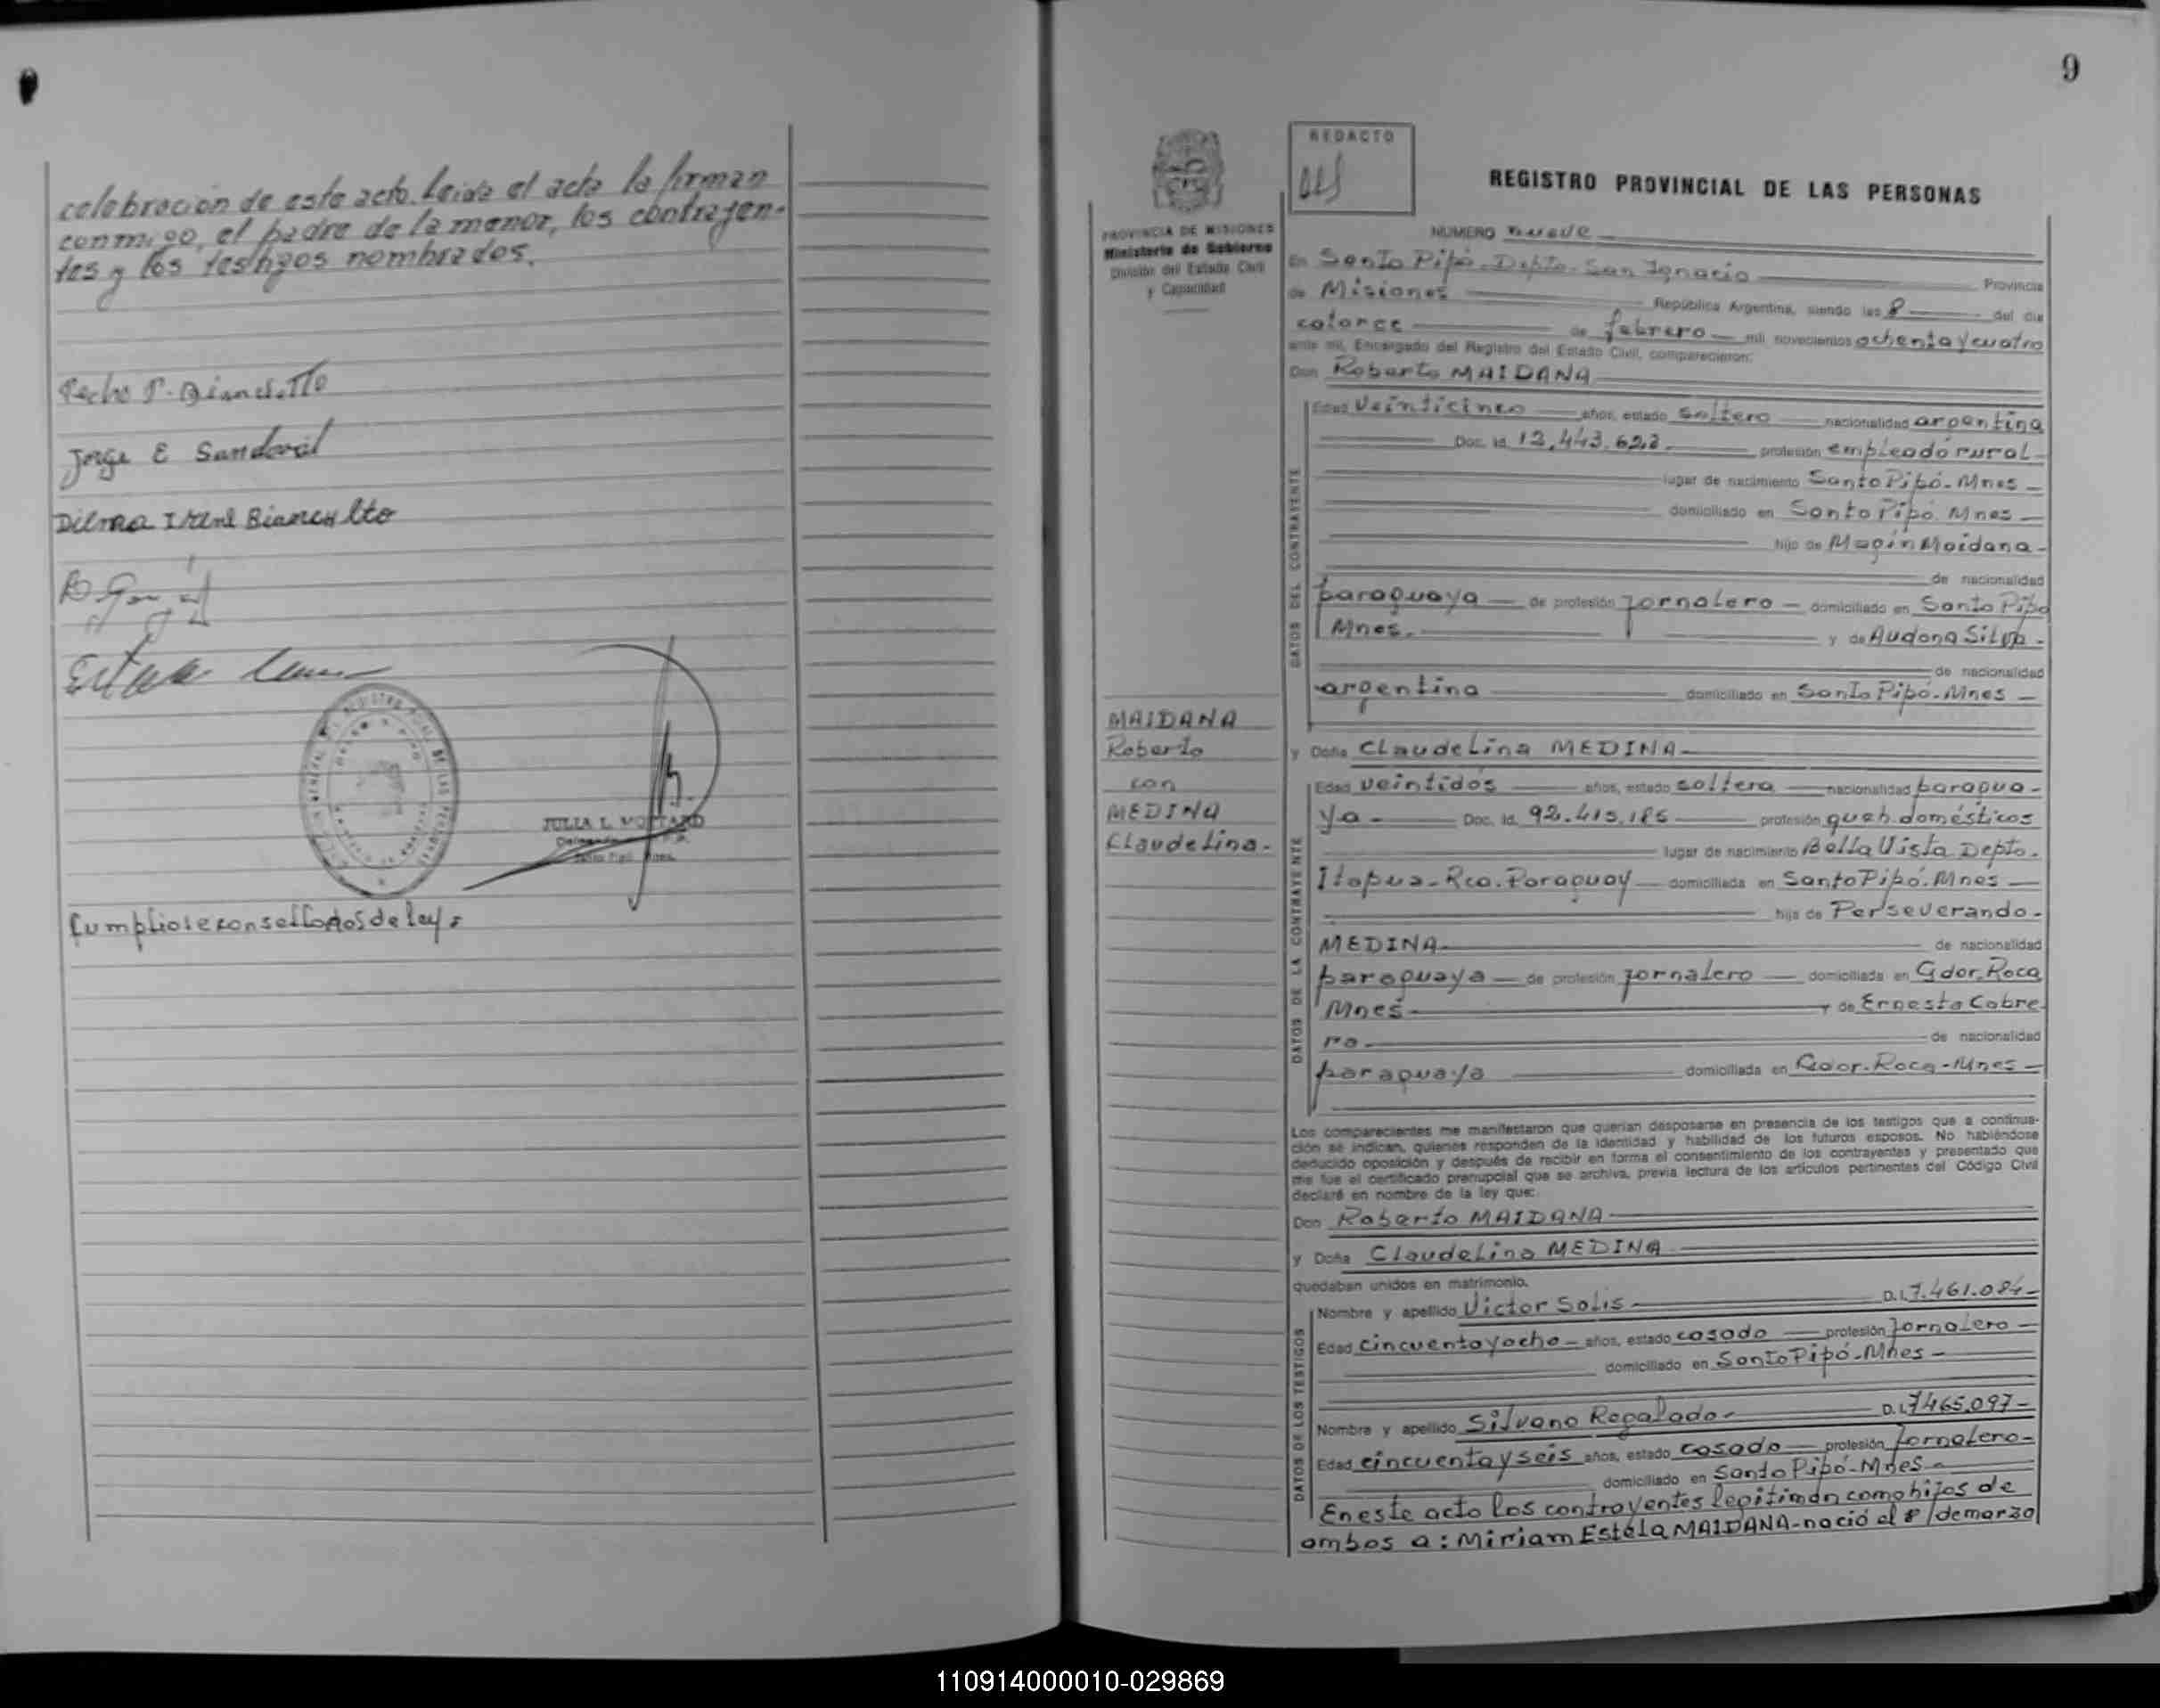 celebracion de este acto. Leida el acta la firman
conmigo, el padre de la menor, los contrayen-
tes y los testigos nombrados.
Jorge E Sandoval
Dilma
JULIA L.
Cumpliose con sellados de ley.
9
REDACTO
REGISTRO PROVINCIAL DE LAS PERSONAS
PROVINCIA DE MISIONES
Ministerio de Gobierno
División del Estado Civil
y Capacidad
NUMERO nueve
En Santo Pipó - Depto - San Ignacio Provincia
de Misiones República Argentina, siendo las 8 del día
catorce de febrero mil novecientos ochenta y cuatro
ante mí, Encargado del Registro del Estado Civil, comparecieron:
Don Roberto MAIDANA
DATOS DEL CONTRAYENTE
Edad Veinticinco años, estado soltero nacionalidad argentina
Doc. Id. profesión empleado rural
lugar de nacimiento Santo Pipó - Mnes -
domiciliado en Santo Pipó. Mnes -
hijo de Magin Maidana -
de nacionalidad
paraguaya - de profesión jornalero - domiciliado en Santo Pipó
Mnes. y de Audona Silva -
de nacionalidad
argentina domiciliado en Santo Pipó - Mnes -
MAIDANA
Roberto
con
MEDINA
Claudelina -
y Doña Claudelina MEDINA -
DATOS DE LA CONTRAYENTE
Edad veintidós años, estado soltera nacionalidad paragua-
ya - Doc. Id. 92.415.185 profesión queh. domésticos
lugar de nacimiento Bella Vista Depto.
Itapua - Rca. Paraguay domiciliada en Santo Pipó. Mnes
hija de Perseverando -
MEDINA de nacionalidad
paraguaya - de profesión jornalero domiciliada en Gdor. Roca
Mnes y de Ernesta Cabre
ra - de nacionalidad
paraguaya domiciliada en Gdor. Roca - Mnes -
Los comparecientes me manifestaron que querían desposarse en presencia de los testigos que a continua-
ción se indican, quienes responden de la identidad y habilidad de los futuros esposos. No habiéndose
deducido oposición y después de recibir en forma el consentimiento de los contrayentes y presentado que
me fue el certificado prenupcial que se archiva, previa lectura de los artículos pertinentes del Código Civil
declaré en nombre de la ley que:
Don Roberto MAIDANA
y Doña Claudelina MEDINA
quedaban unidos en matrimonio.
DATOS DE LOS TESTIGOS
Nombre y apellido Victor Solis - D.I. 7.461.084 -
Edad cincuenta y ocho - años, estado casado profesión Jornalero -
domiciliado en Santo Pipó - Mnes -
Nombre y apellido Silvano Regalado - D.I. 7465.097 -
Edad cincuenta y seis años, estado casado profesión Jornalero -
domiciliado en Santo Pipó - Mnes -
En este acto los contrayentes legitiman como hijos de
ambos a: Miriam Estela MAIDANA - nació el 8 / de marzo
110914000010-029869